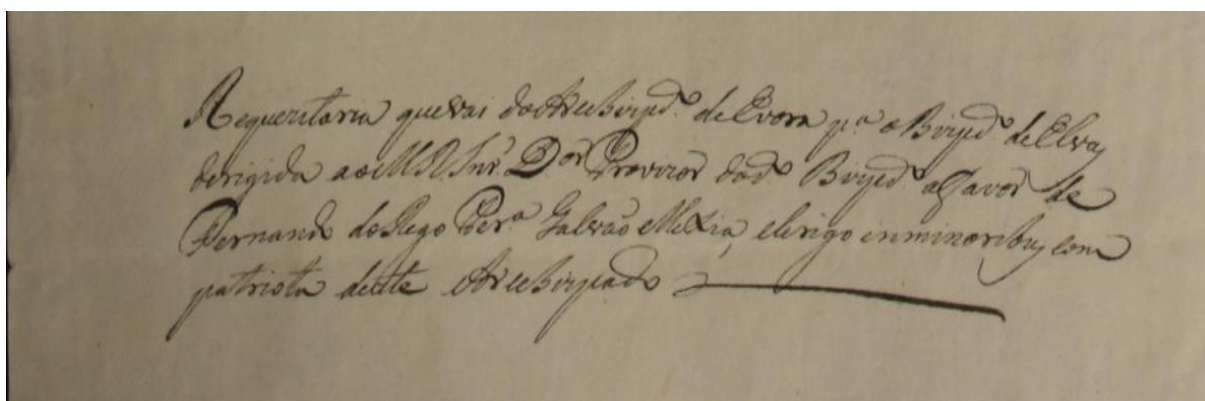 Requezitoria que vai do Arcebispd.º de Evora p.ª o Bispd.º de Elvas
derigida ao M. R. Snr. D.or Provizor do d.º Bispd.º a favor de
Fernando do Rego Per.ª Galvão Mexia, clerigo in minoribus com
patriota deste Arcebispado